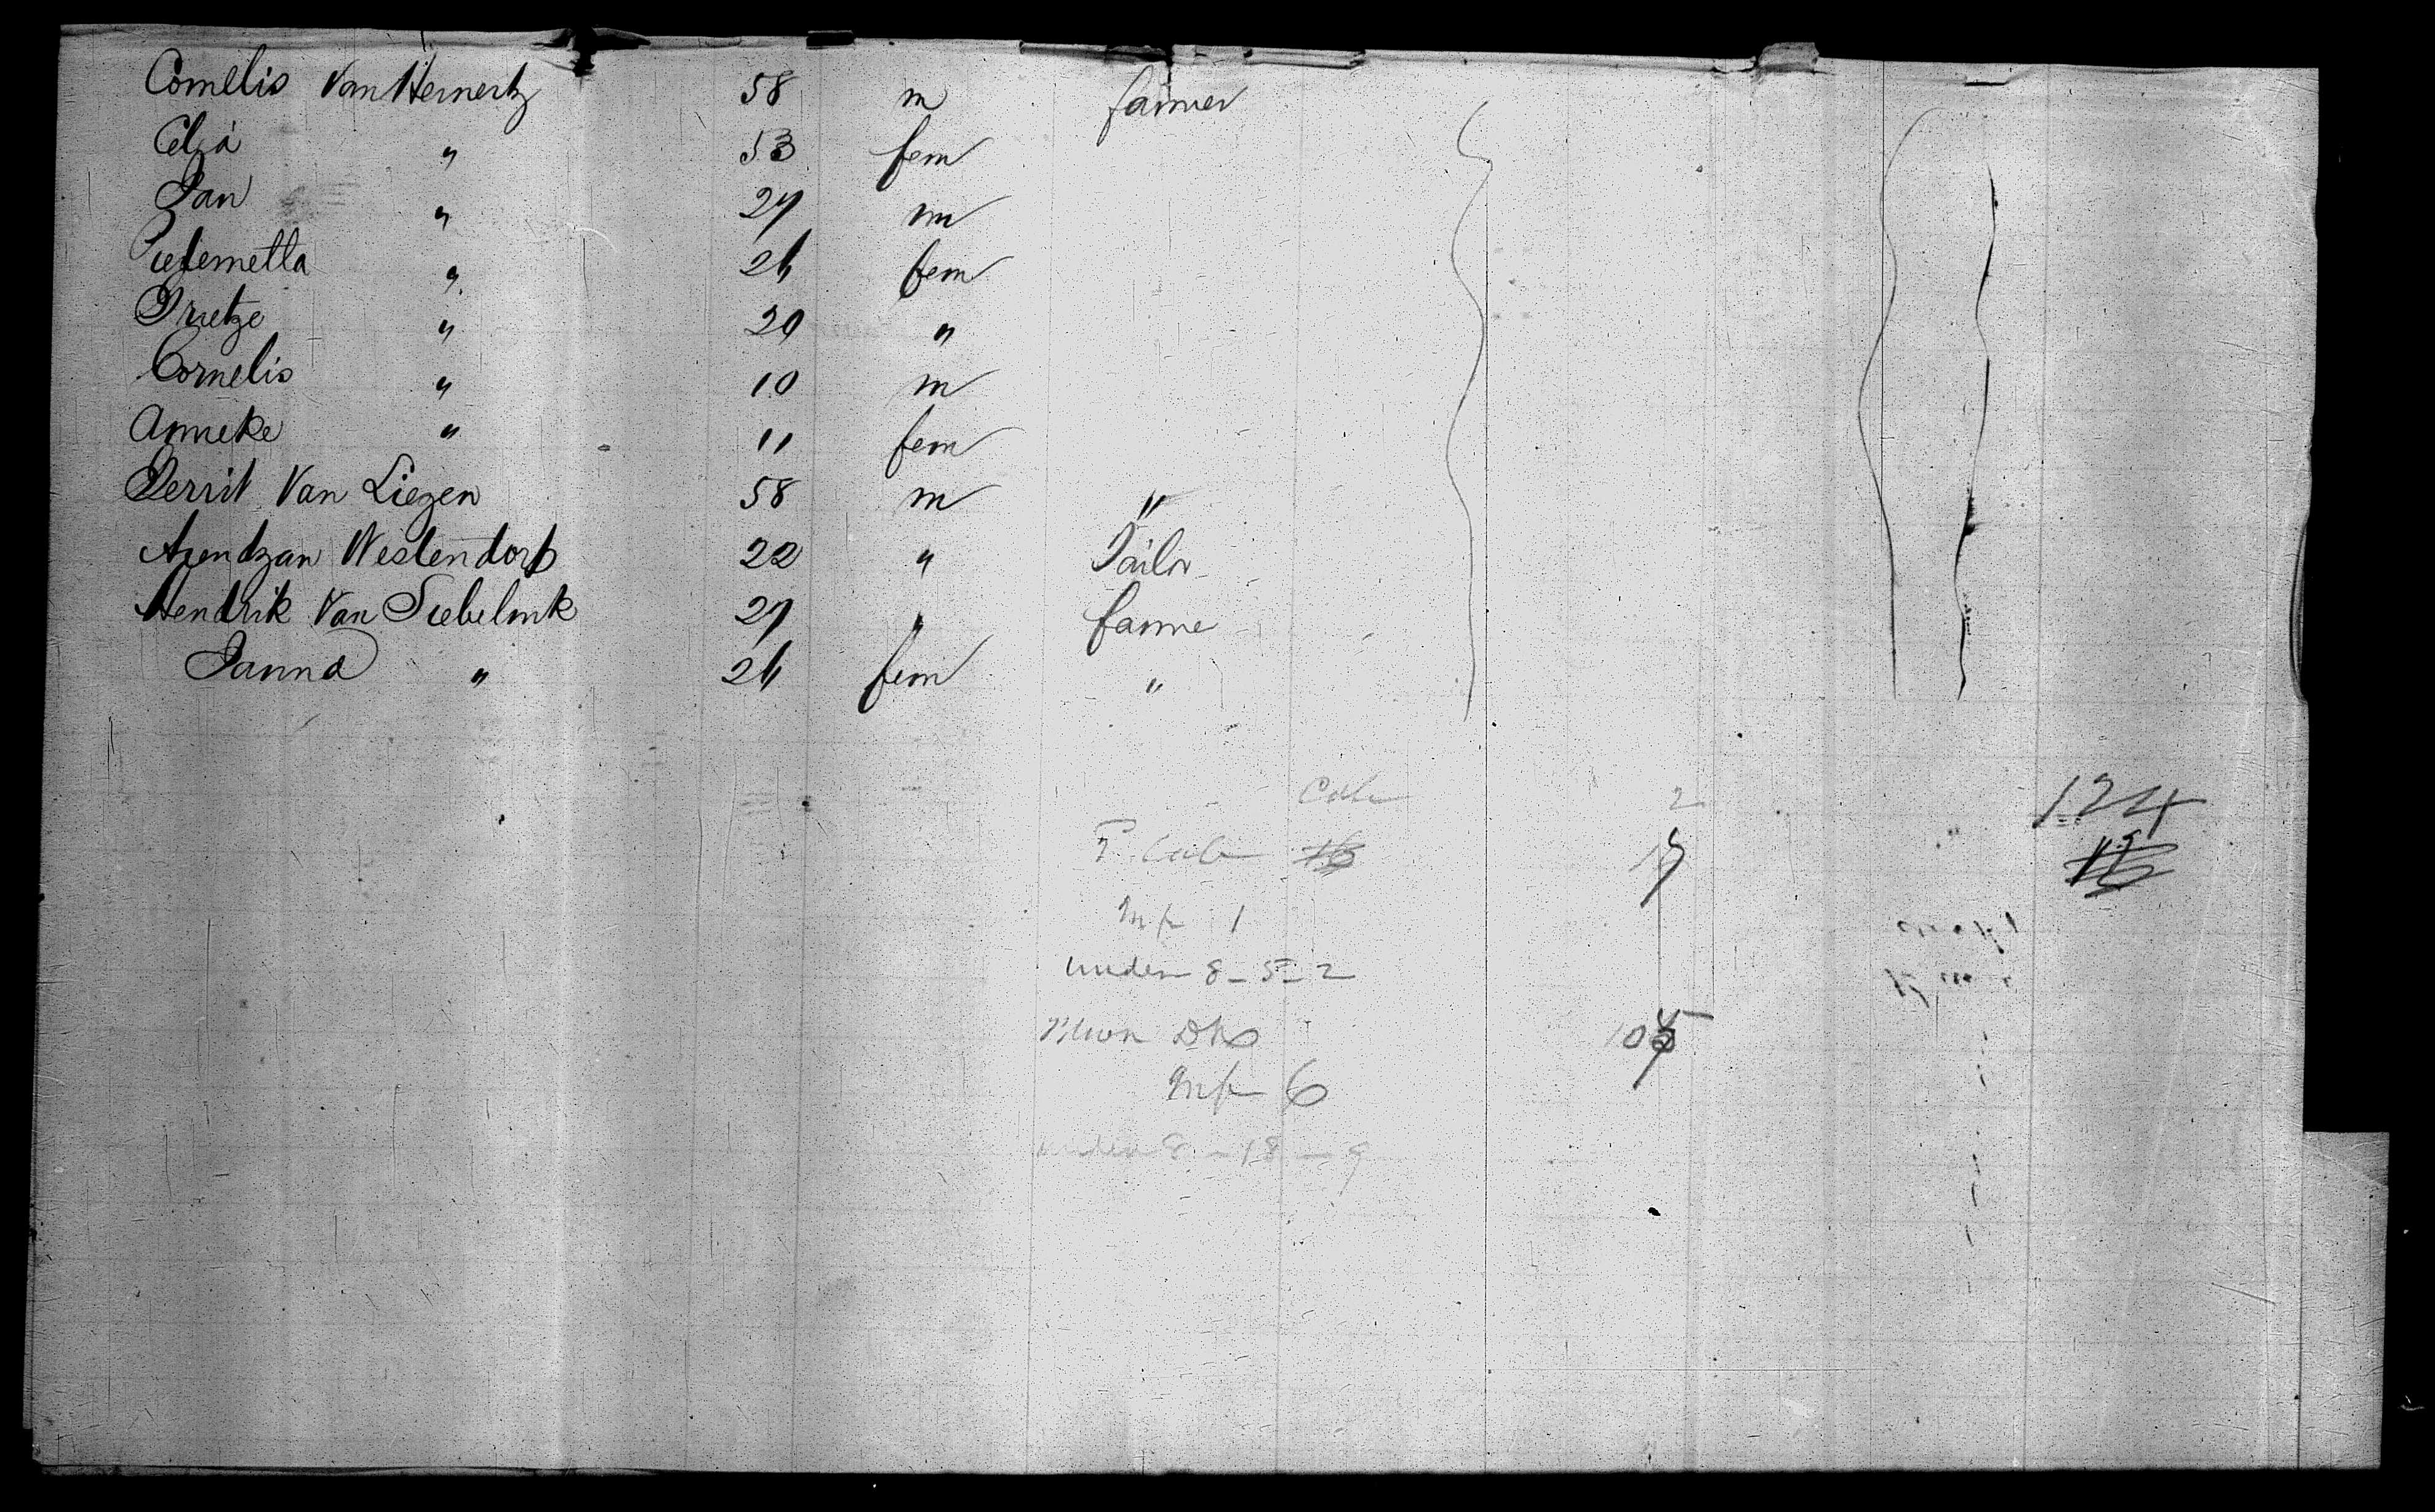 Cornelis Van Hernertz 58 m farmer
Celia " 53 fem
Jan " 27 m
" 26 fem
" 20 "
Cornelis " 10 m
Anneke " 11 fem
Gerrit Van Liezen 58 m "
Arendzan Westendorp 22 " Tailor
Hendrik Van Siebelink 27 " farme
Janna " 26 fem "
Cab 2 124
Cab 16
Inf 1
under 8 - 5 - 2
Inf 6
under 8 - 18 - 9